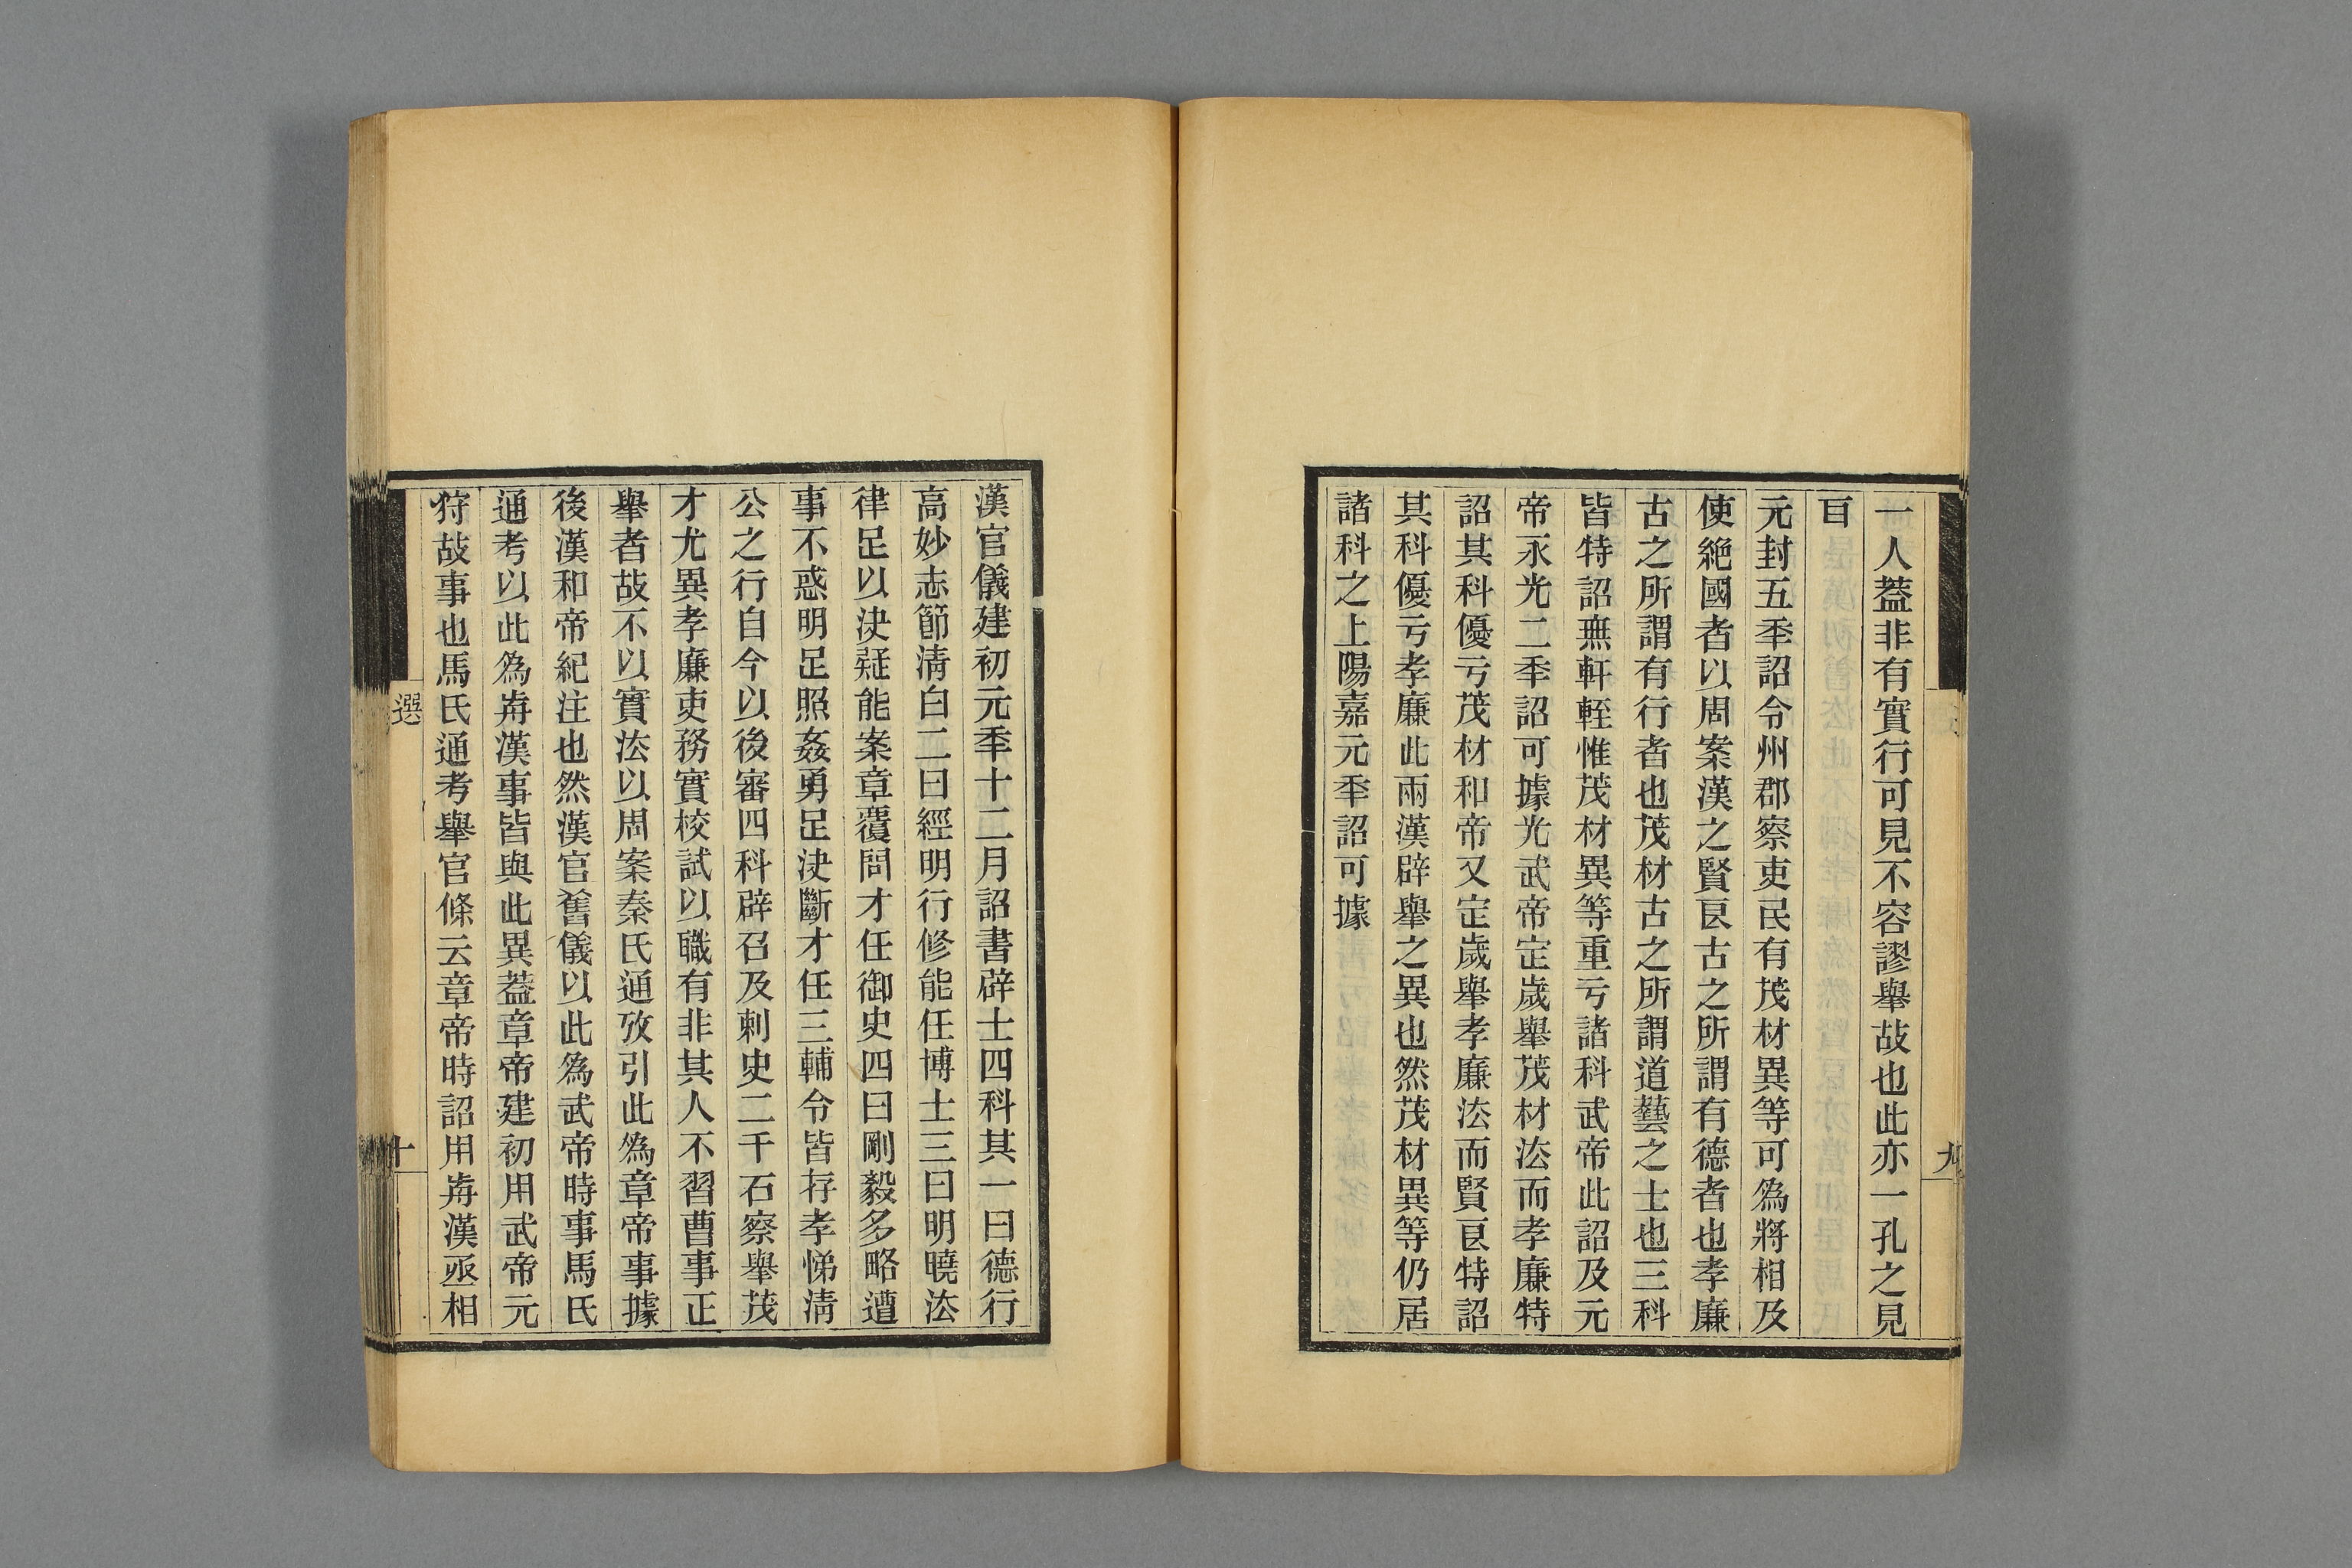 一人蓋非有實行可見不容謬舉故也此亦一孔之見
元封五秊詔令州郡察吏民有茂材異等可爲將相及
使絶國者以周案漢之賢良古之所謂有德者也孝廉
古之所謂有行者也茂材古之所謂道藝之士也三科
皆特詔無軒輊惟茂材異等重亏諸科武帝此詔及元
帝永光二秊詔可據光武帝定歲舉茂材法而孝廉特
詔其科優亏茂材和帝又定歲舉孝廉法而賢良特詔
其科優亏孝廉此兩漢辟舉之異也然茂材異等仍居
諸科之上陽嘉元秊詔可據
九
漢官儀建初元秊十二月詔書辟士四科其一曰德行
高妙志節淸白二曰經明行修能任博士三曰明曉法
律足以決疑能案章覆問才任御史四曰剛毅多略遭
事不惑明足照姦勇足決斷才任三輔令皆存孝悌淸
公之行自今以後審四科辟召及刺史二千石察舉茂
才尤異孝廉吏務實校試以職有非其人不習曹事正
舉者故不以實法以周案秦氏通攷引此爲章帝事據
後漢和帝紀注也然漢官舊儀以此爲武帝時事馬氏
通考以此爲歬漢事皆與此異蓋章帝建初用武帝元
狩故事也馬氏通考舉官條云章帝時詔用歬漢丞相
選
十